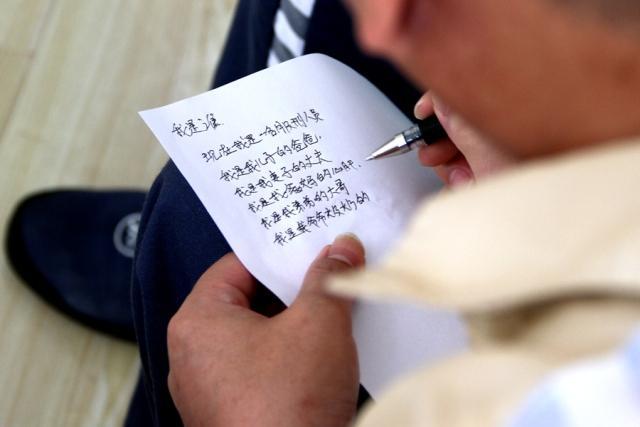 我是谁
现在我是一名服刑人员
我是我儿子的爸爸.
我是我妻子的丈夫
我是我爸妈的
我是我弟弟的大哥
我是我爷爷